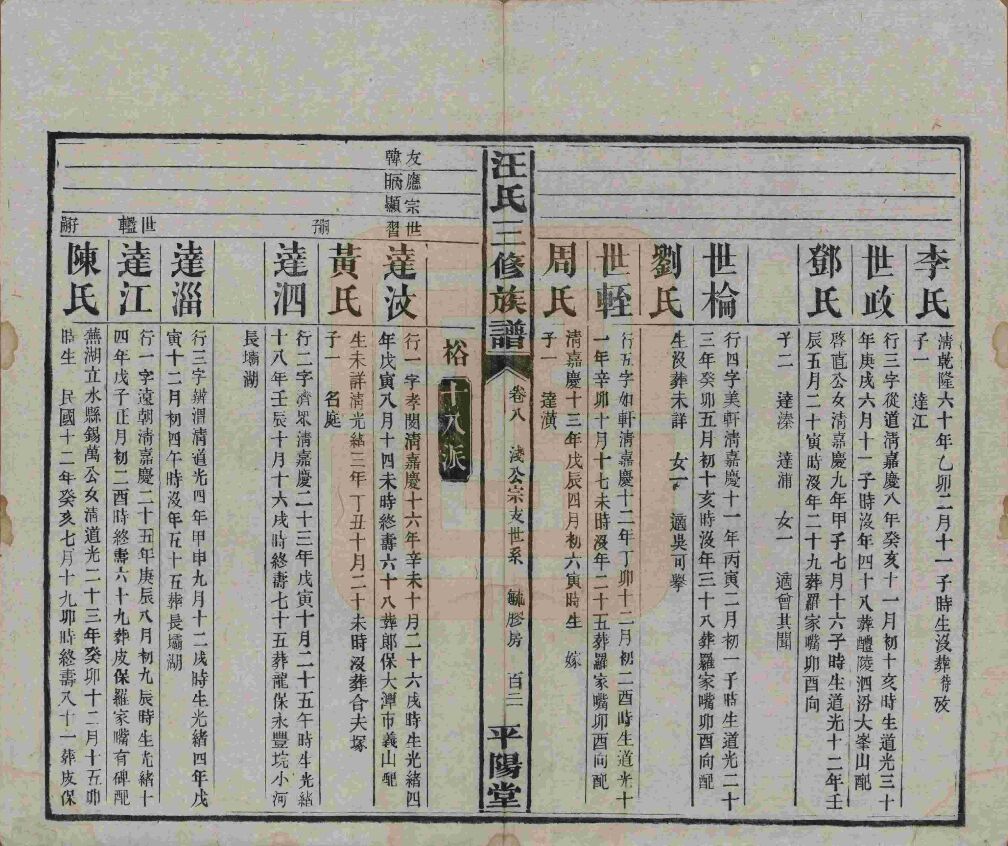 李氏
清乾隆六十年乙卯二月十一子時生沒葬待攷
子一　達江
世政
行三字從道清嘉慶八年癸亥十一月初十亥時生道光三十
年庚戌六月十一子時沒年四十八葬醴陵泗汾大峯山配
鄧氏
啓直公女清嘉慶九年甲子七月十六子時生道光十二年壬
辰五月二十寅時沒年二十九葬羅家嘴卯酉向
子二　達溱　達浦　女一　適曾其聞
世棆
行四字美軒清嘉慶十一年丙寅二月初一子時生道光二十
三年癸卯五月初十亥時沒年三十八葬羅家嘴卯酉向配
劉氏
生沒葬未詳　女一　適吳可擧
世輊
行五字如軒清嘉慶十二年丁卯十二月初二酉時生道光十
一年辛卯十月十七未時沒年二十五葬羅家嘴卯酉向配
周氏
清嘉慶十三年戊辰四月初六寅時生　嫁
子一　達潢
汪氏三修族譜
卷八　淺公宗支世系　毓膠房　百三
平陽堂
裕
十八派
友應宗世
韓昞顯習
達汶
行一字孝閔清嘉慶十六年辛未十月二十六戌時生光緒四
年戊寅八月十四未時終壽六十八葬鄖保大潭市義山配
黃氏
生未詳清光緒三年丁丑十月二十未時沒葬合夫塚
子一　名庭
達泗
行二字濟眾清嘉慶二十三年戊寅十月二十五午時生光緒
十八年壬辰十月十六戌時終壽七十五葬龍保永豐垸小河
長壩湖
達淄
行三字辨渭清道光四年甲申九月十二戌時生光緒四年戊
寅十二月初四午時沒年五十五葬長壩湖
世轞
達江
行一字遠朝清嘉慶二十五年庚辰八月初九辰時生光緒十
四年戊子正月初二酉時終壽六十九葬皮保羅家嘴有碑配
陳氏
蕪湖立水縣錫萬公女清道光二十三年癸卯十二月十五卯
時生　民國十二年癸亥七月十九卯時終壽八十一葬皮保